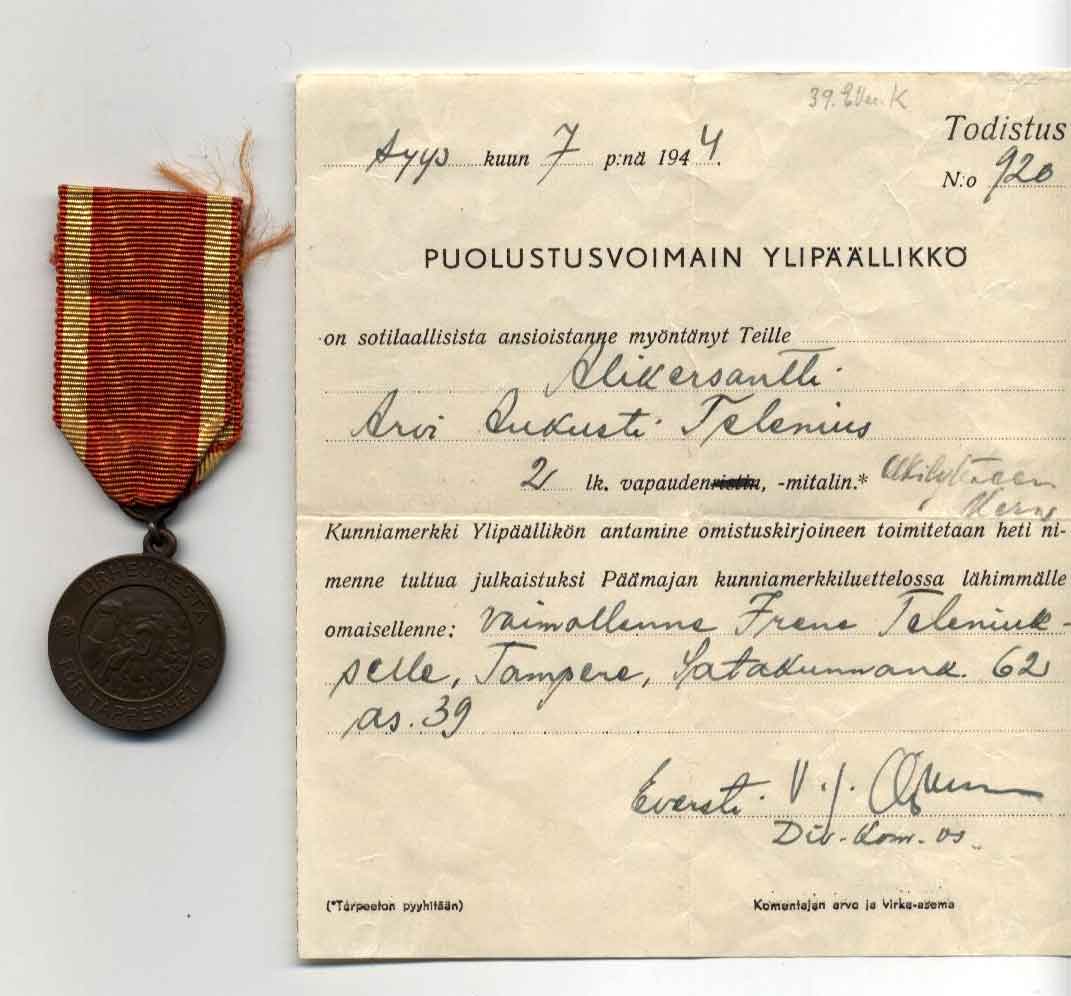 URHEUDESTA
FÖR TAPPERHET
39.
Todistus
Syys kuun 7 p:nä 1944.
N:o 920
PUOLUSTUSVOIMAIN YLIPÄÄLLIKKÖ
on sotilaallisista ansioistanne myöntänyt Teille
Alikersantti
Arvi Aukusti Telenius
2 lk. vapaudenristin, -mitalin.*
Kunniamerkki Ylipäällikön antamine omistuskirjoineen toimitetaan heti ni-
menne tultua julkaistuksi Päämajan kunniamerkkiluettelossa lähimmälle
omaisellenne: vaimollenne Irene Teleniuk-
selle, Tampere, Satakunnank. 62
as. 39
Eversti V. J.
Div. Kom. os.
(*Tarpeeton pyyhitään)
Komentajan arvo ja virka-asema